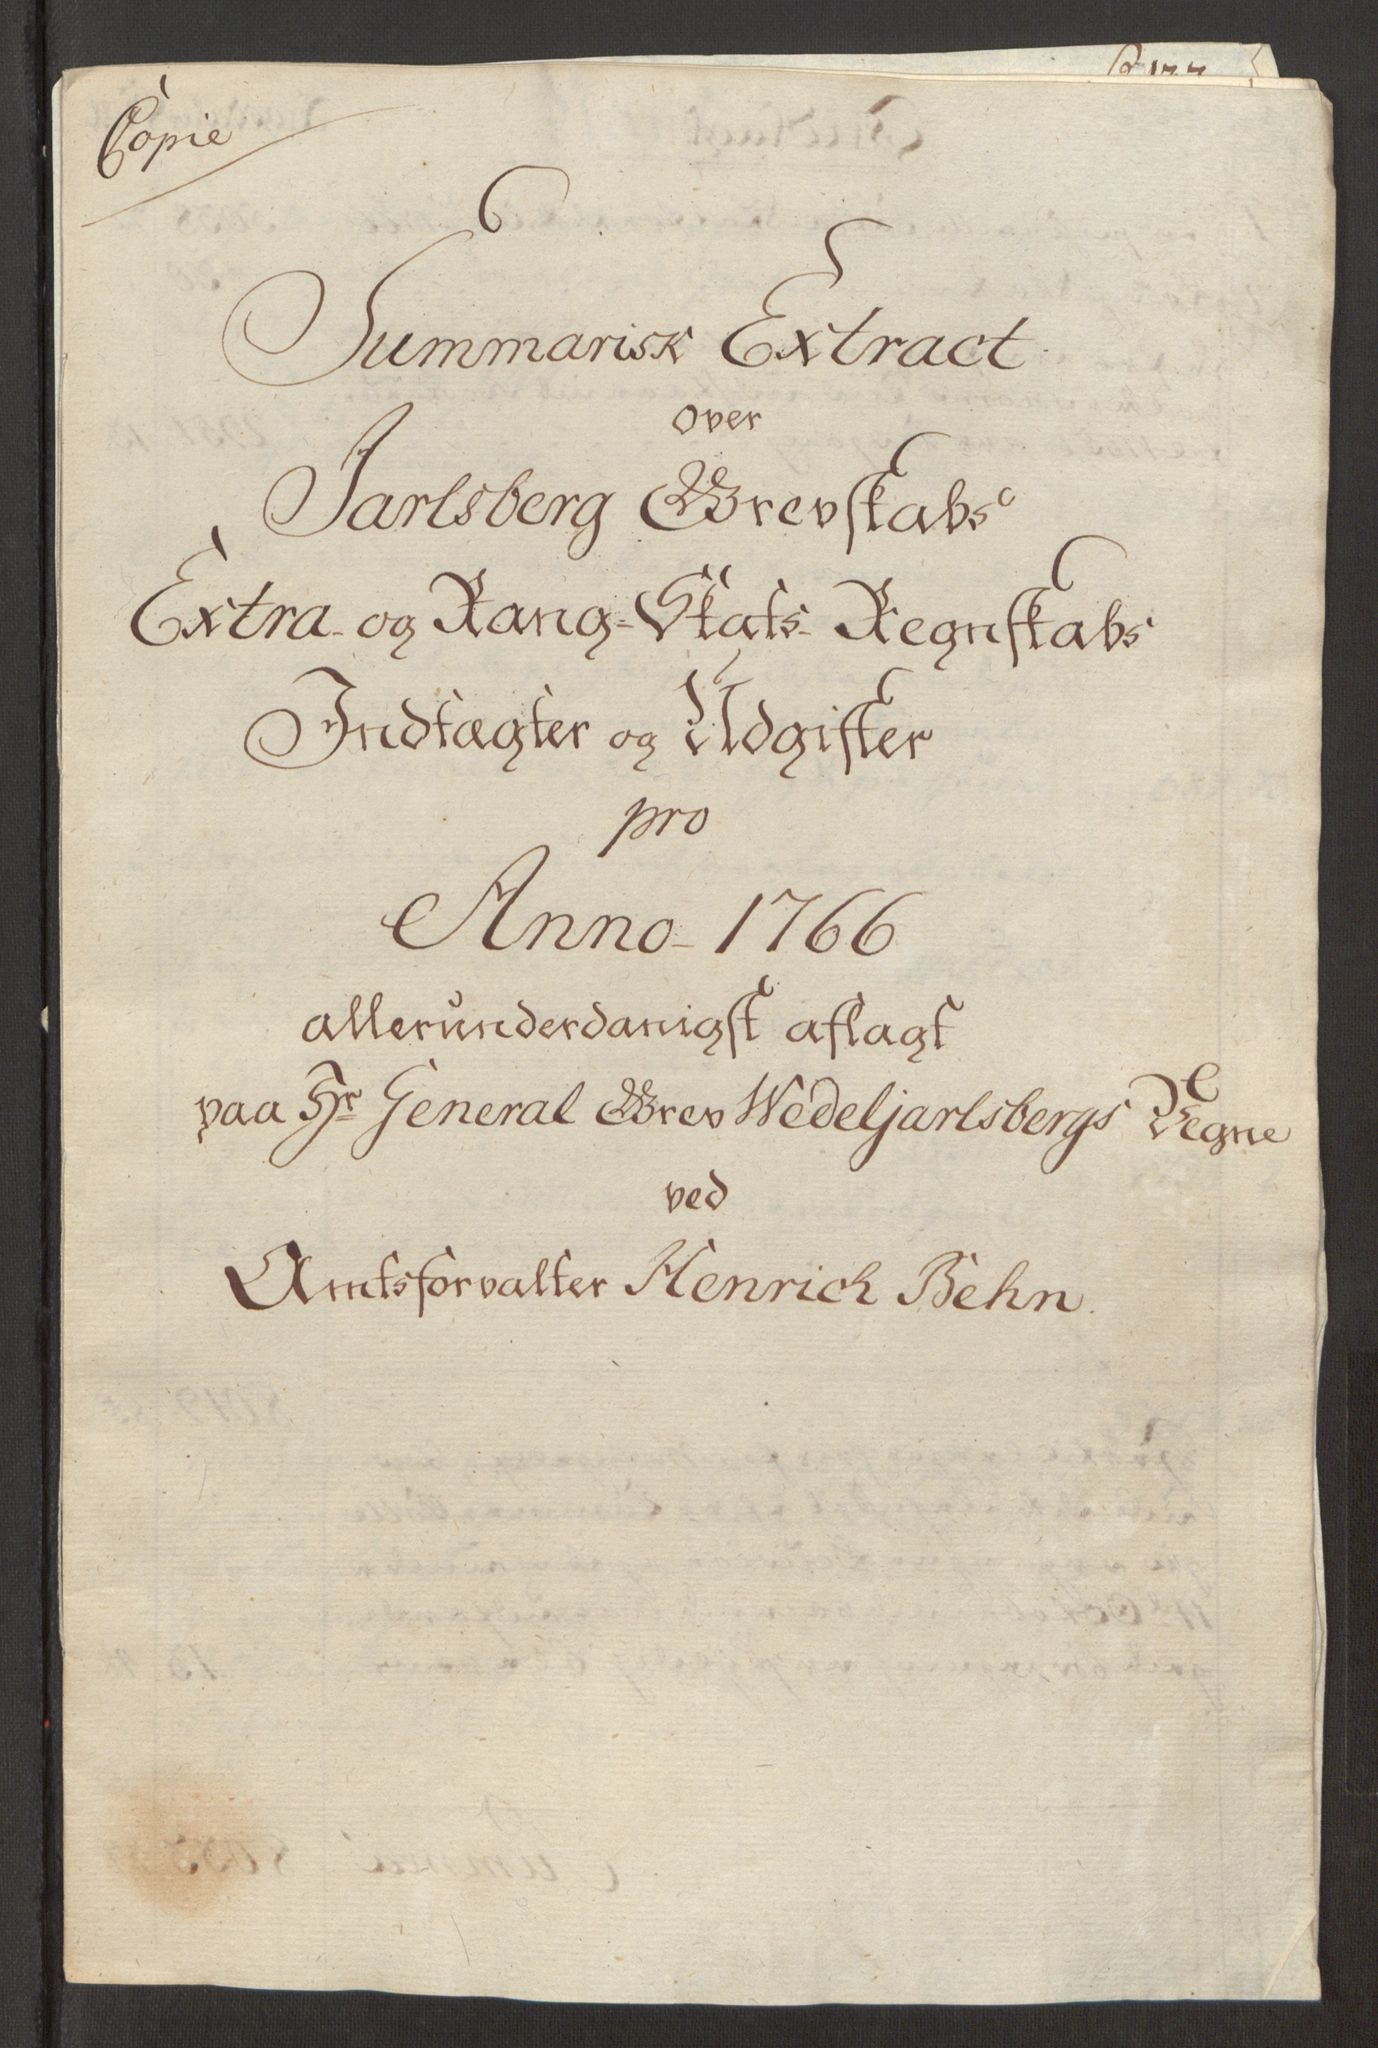 Copie
Summarisk Extract
over
Jarlsberg Grevskabs
Extra- og Rang-Skats- Regnskabs
Indtægter og Udgifter
pro
Anno- 1766
allerunderdanigst aflagt
paa Hr General Grev Wedeljarlsbergs Vegne
ved
Amtsforvalter Henrich Behn.